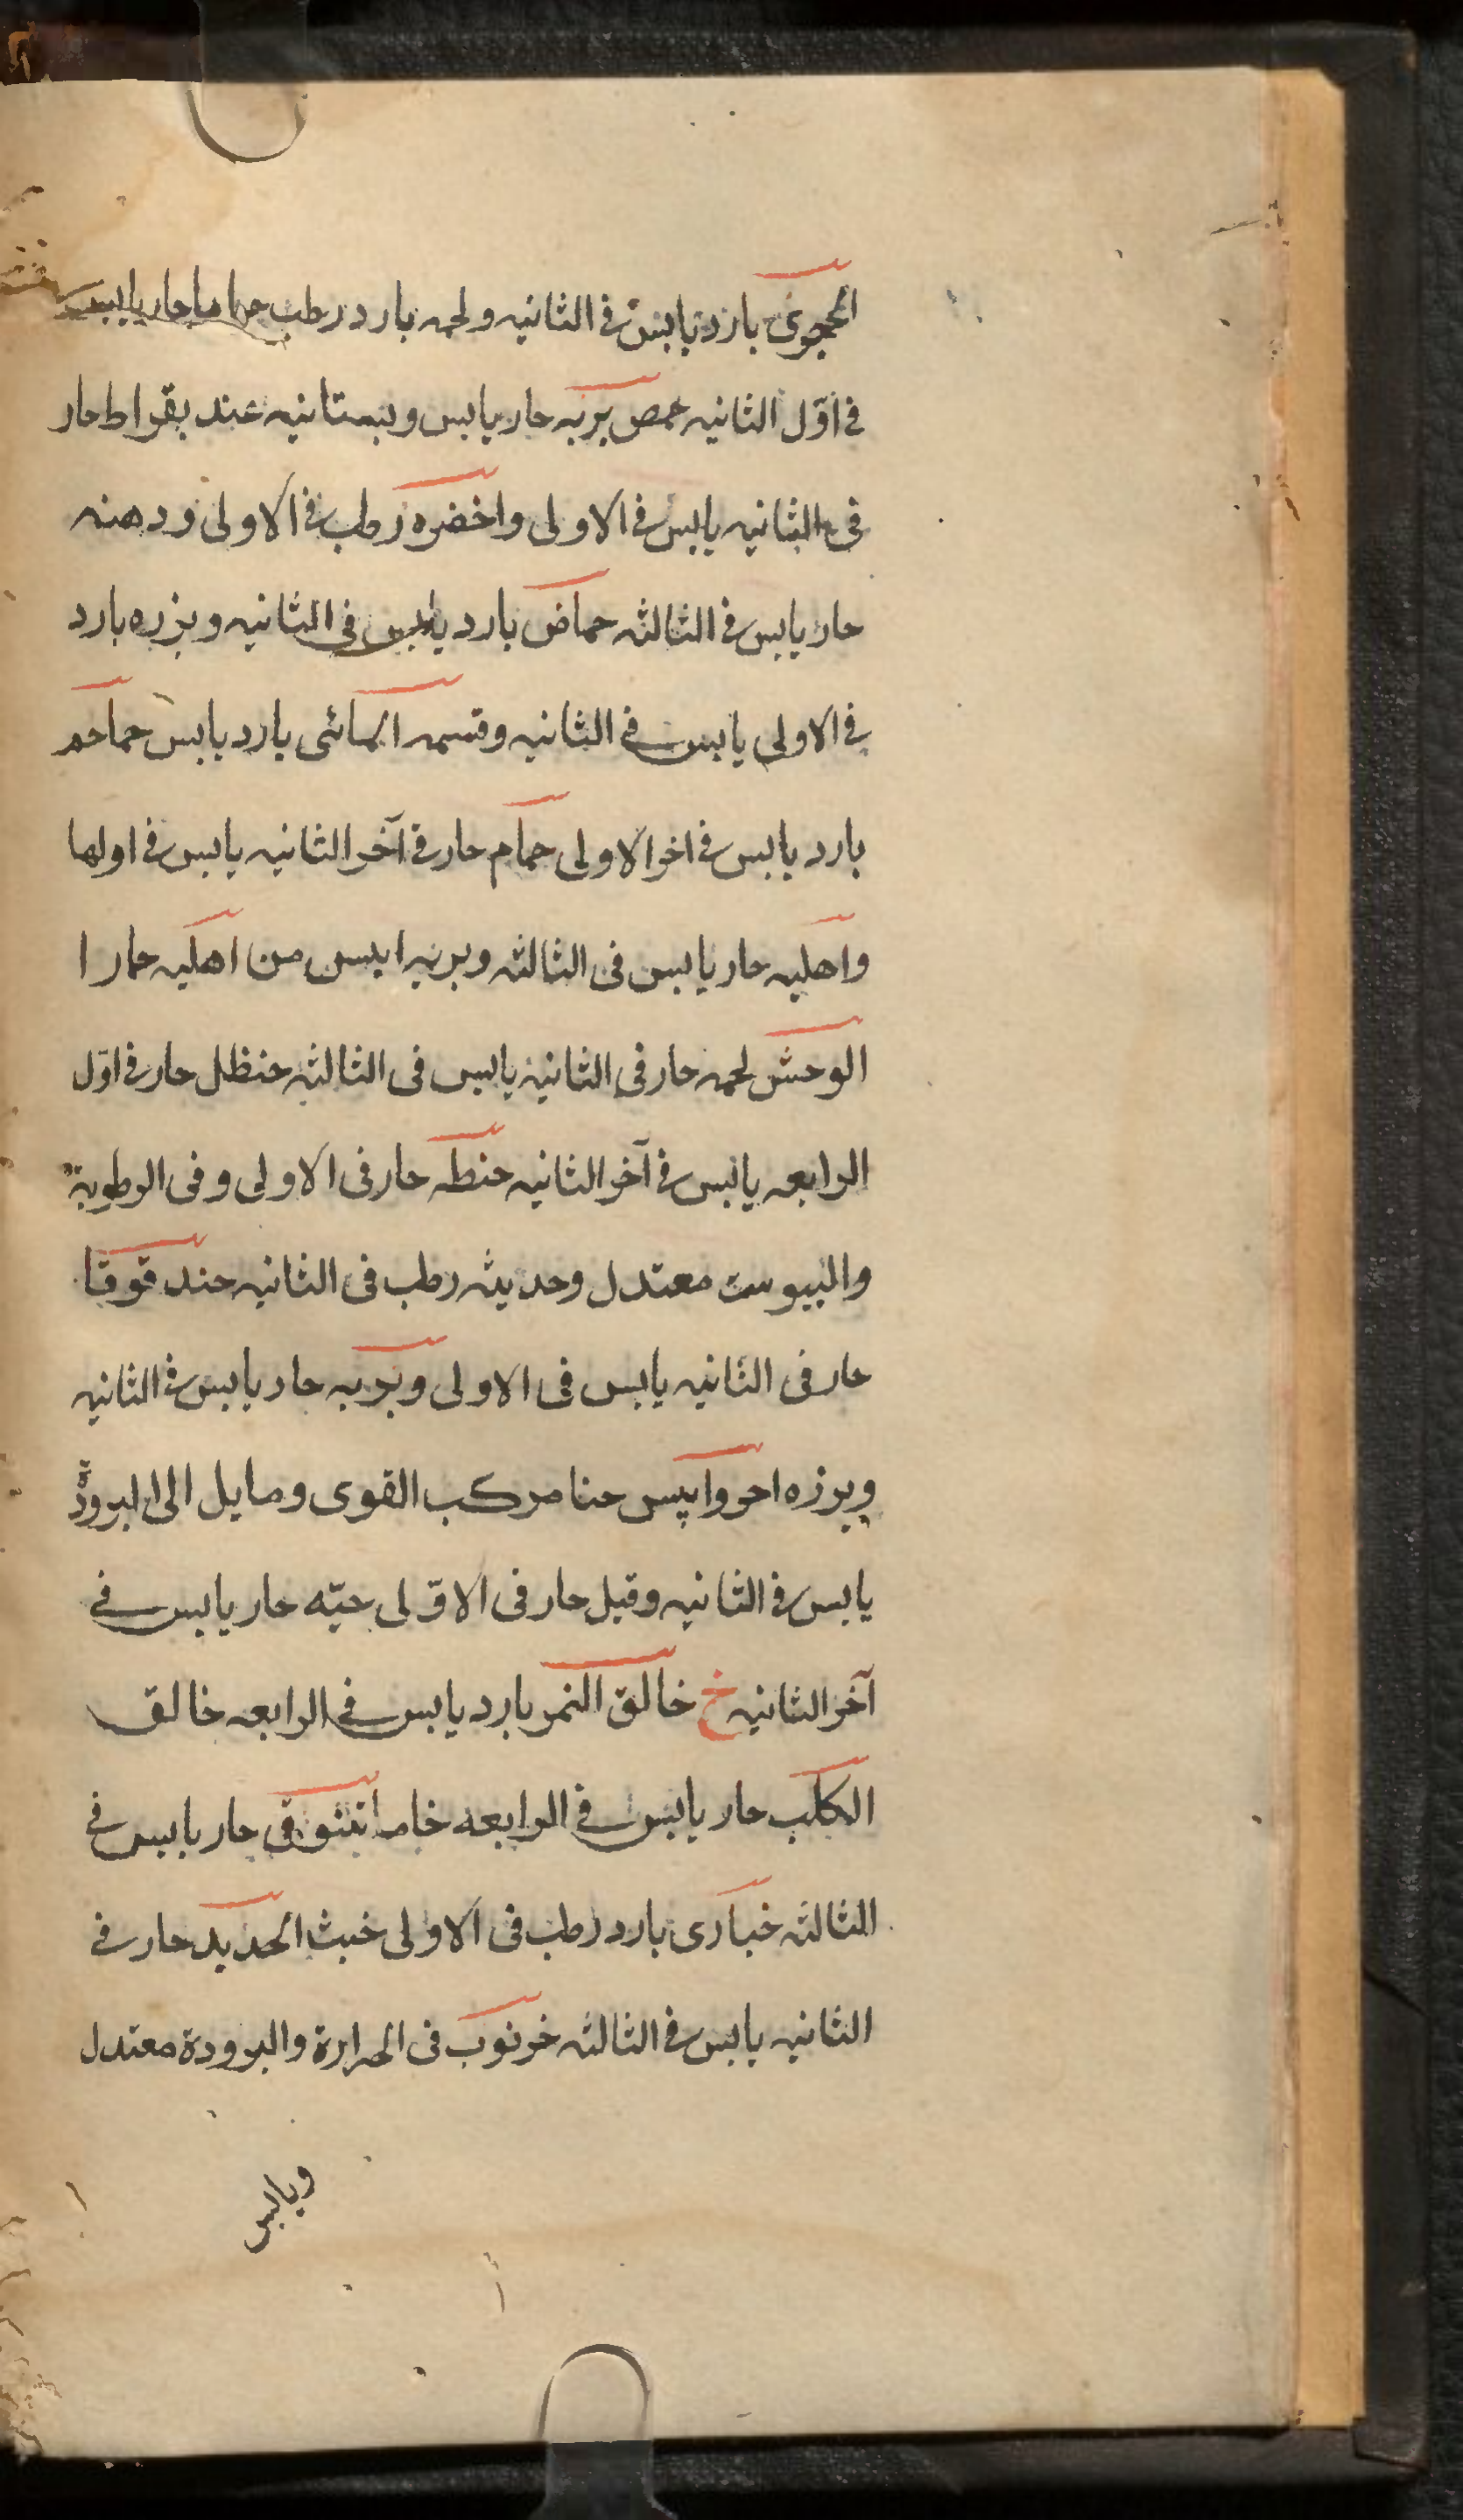 بارد يابس في الثانيه ولحمه بارد رطب حماما حار يابس
في اوّل الثانيه حمص بريه حار يابس وبستانيه عند بقراط حار
في الثانيه يابس في الاولى واخضره رطب في الاولى ودهنه
حار يابس في الثالثه حماض بارد يابس في الثانيه وبزره بارد
في الاولى يابس في الثانيه وقسمه المائى بارد يابس حماحم
بارد يابس في اخر الاولى حمام حار في آخر الثانيه يابس في اولها
واهليه حار يابس في الثالثه وبريه ايبس من اهليه حمار ا
الوحش لحمه حار في الثانيه يابس في الثالثه حنظل حار في اوّل
الرابعه يابس في آخر الثانيه حنطه حار في الاولى وفى الرطوبة
واليبوست معتدل وحديثه رطب في الثانيه حندقوقا
حار في الثانيه يابس في الاولى وبريه حار يابس في الثانيه
وبرزه احر وايبس حنا مركب القوى ومايل الى البرودة
يابس في الثانيه وقيل حار في الاوّلى حيّه حار يابس في
آخر الثانيه خ خالق النمر بارد يابس في الرابعه خالق
الكلب حار يابس في الرابعه خاما حار يابس في
الثالثه خبازى بارد رطب في الاولى خبث الحديد حار في
الثانيه يابس في الثالثه خرنوب في الحرارة والبرودة معتدل
ويابس